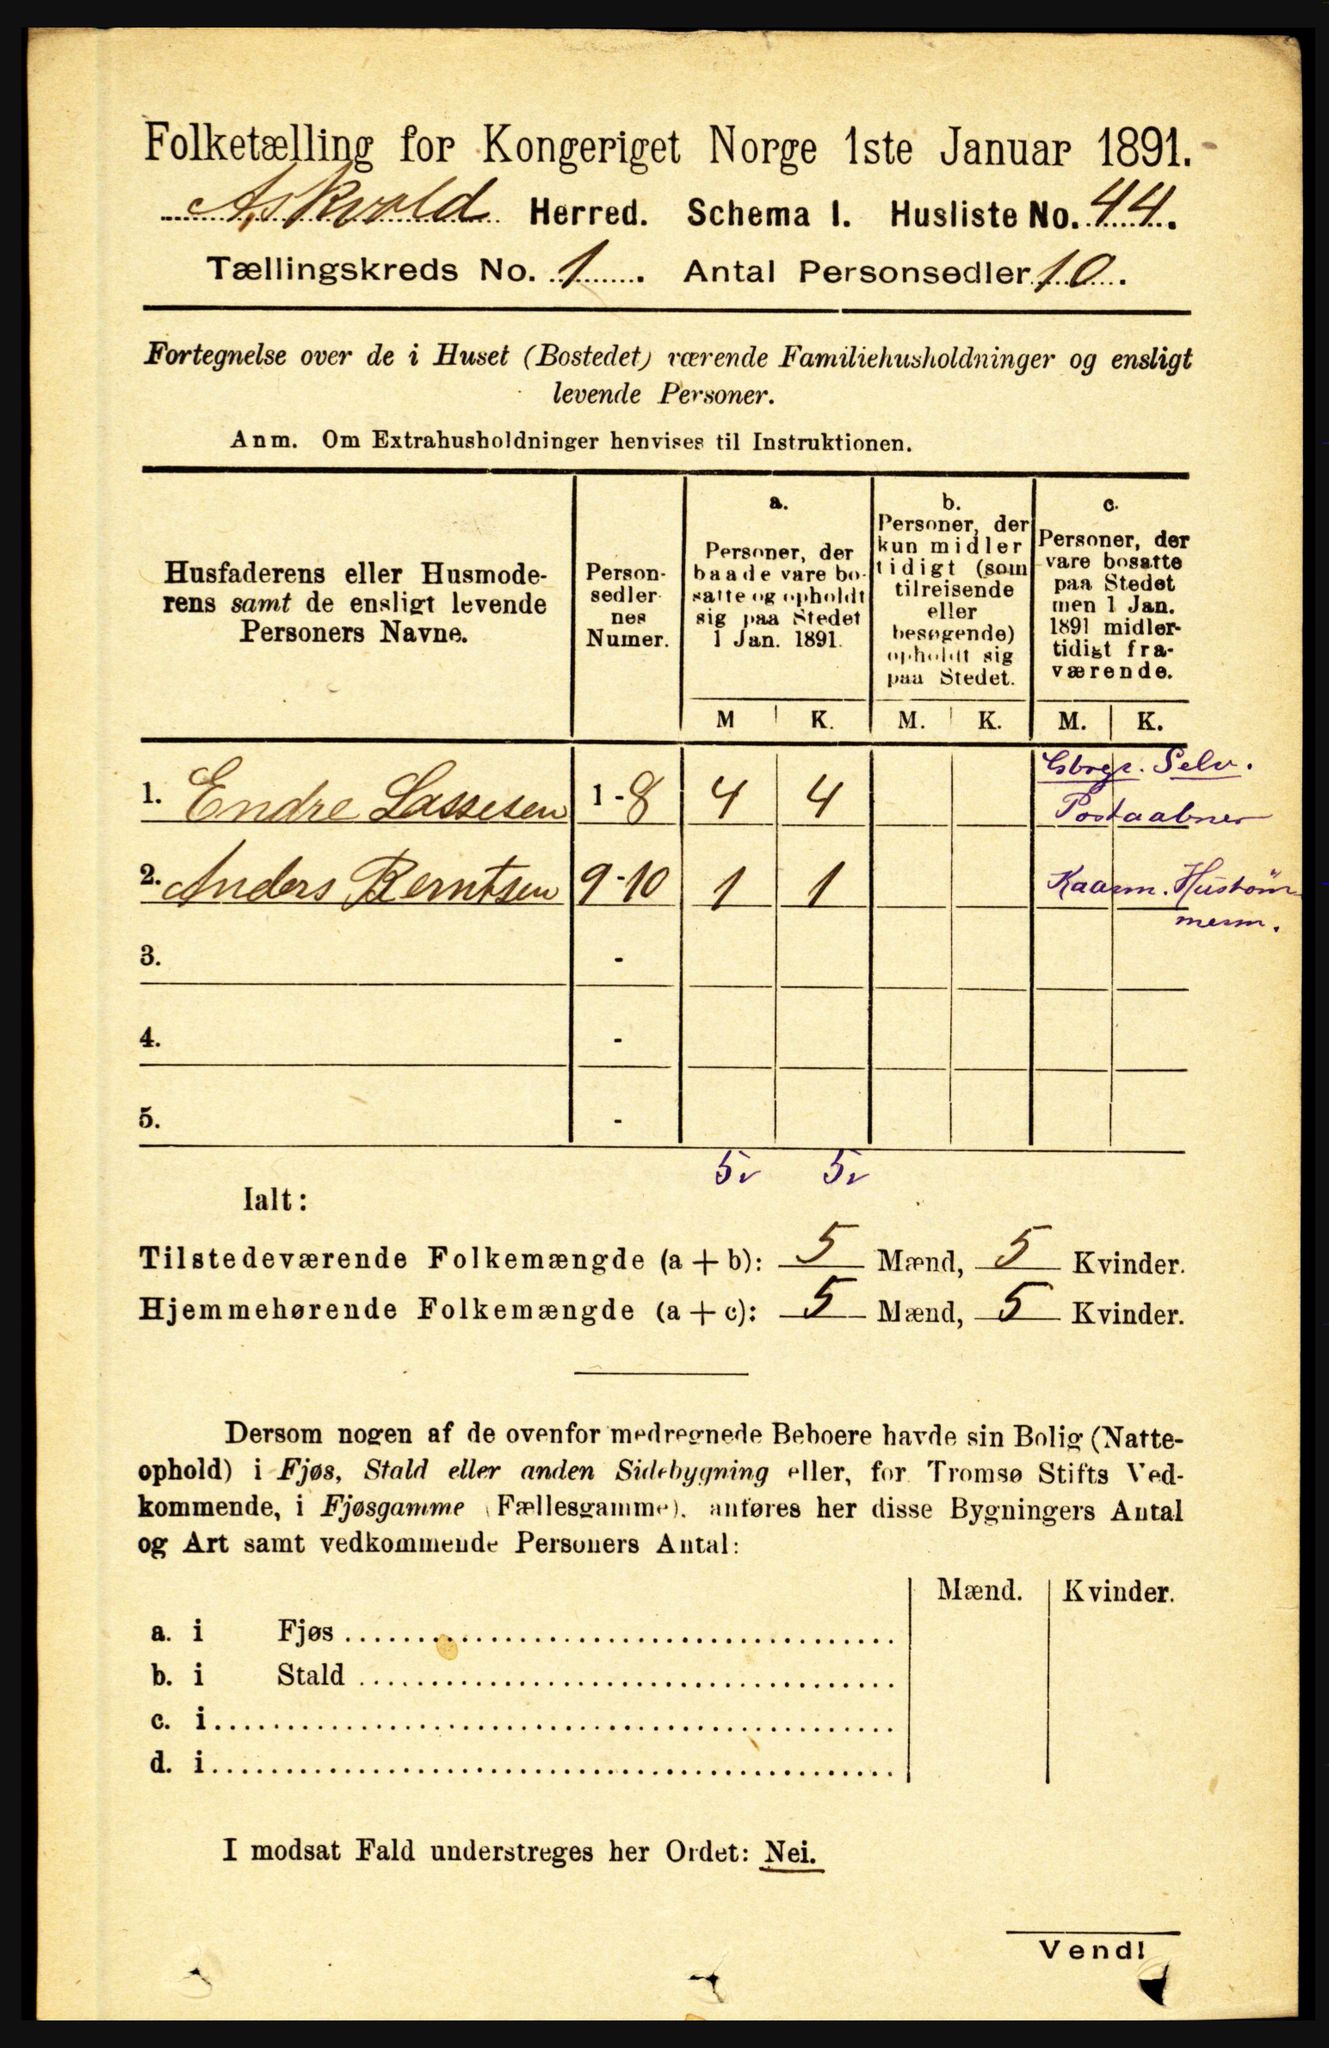 Folketælling for Kongeriget Norge 1ste Januar 1891.
Askvold Herred. Schema I. Husliste No. 44.
Tællingskreds No. 1. Antal Personsedler 10.
Fortegnelse over de i Huset (Bostedet) værende Familiehusholdninger og ensligt
levende Personer.
Anm. Om Extrahusholdninger henvises til Instruktionen.
Husfaderens eller Husmode-
rens samt de ensligt levende
Personers Navne.
Person-
sedler-
nes
Numer.
a.
Personer, der
baade vare bo-
satte og opholdt
sig paa Stedet
1 Jan. 1891.
b.
Personer, der
kun midler
tidigt (som
tilreisende
eller
besøgende)
opholdt sig
paa Stedet.
c.
Personer, der
vare bosatte
paa Stedet
men 1 Jan.
1891 midler-
tidigt fra-
værende.
M K. M. K. M. K.
1. Endre Lassesen 1-8 4 4 Gbrgr. Selv.
Postaabner
2. Anders Berntsen 9-10 1 1 Kaarm.
3. -
4. -
5. -
5v 5v
Ialt:
Tilstedeværende Folkemængde (a + b): 5 Mænd, 5 Kvinder.
Hjemmehørende Folkemængde (a + c): 5 Mænd, 5 Kvinder.
Dersom nogen af de ovenfor medregnede Beboere havde sin Bolig (Natte-
ophold) i Fjøs, Stald eller anden Sidebygning eller, for Tromsø Stifts Ved-
kommende, i Fjøsgamme (Fællesgamme), anføres her disse Bygningers Antal
og Art samt vedkommende Personers Antal:
Mænd. Kvinder.
a. i Fjøs
b. i Stald
c. i
d. i
I modsat Fald understreges her Ordet: Nei.
Vend!